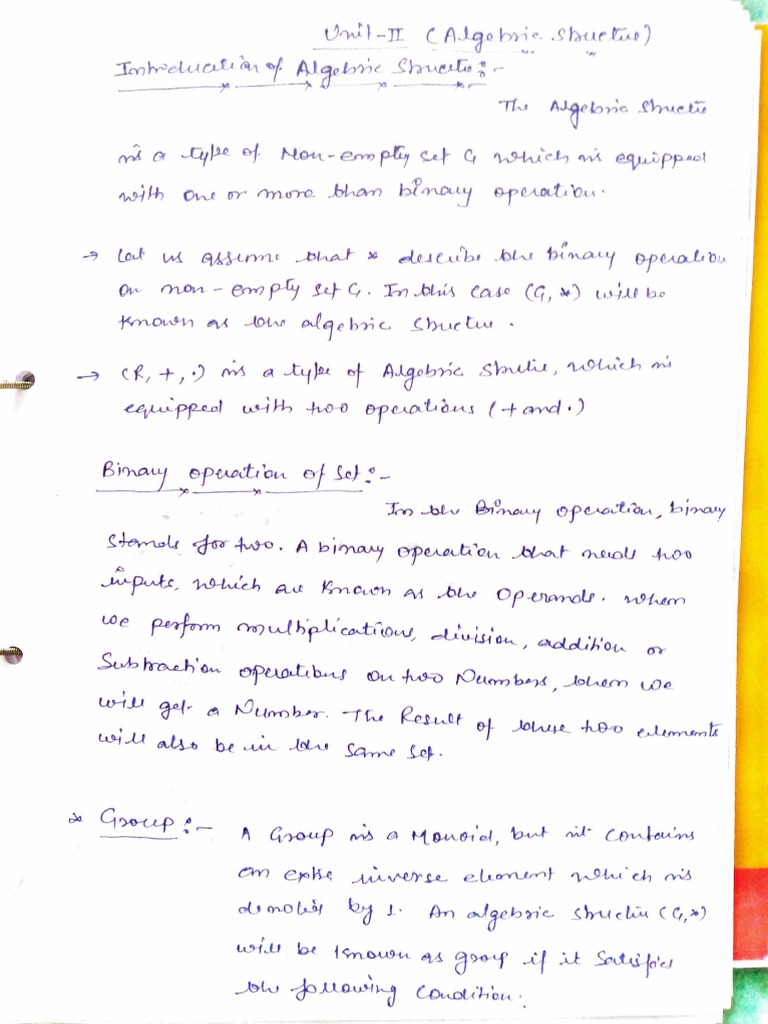 Unit-II (Algebric Structure)
Introducation of Algebric Structure:-
The Algebric Structure
is a type of Non-empty set G which is equipped
with one or more than binary operation.
→ Let us assume that * describe the binary operation
on non-empty set G. In this case (G, *) will be
known as the algebric structure.
→ (R, +, ·) is a type of Algebric Structure, which is
equipped with two operations (+ and ·)
Binary operation of set:-
In the Binary operation, binary
stands for two. A binary operation that needs two
inputs, which are known as the operands. when
we perform multiplications, division, addition or
Subtraction operations on two Numbers, then we
will get a Number. The Result of these two elements
will also be in the same set.
* Group:- A Group is a Monoid, but it contains
an extra inverse element which is
denoted by 1. An algebric structure (G,*)
will be known as group if it satisfies
the following condition: